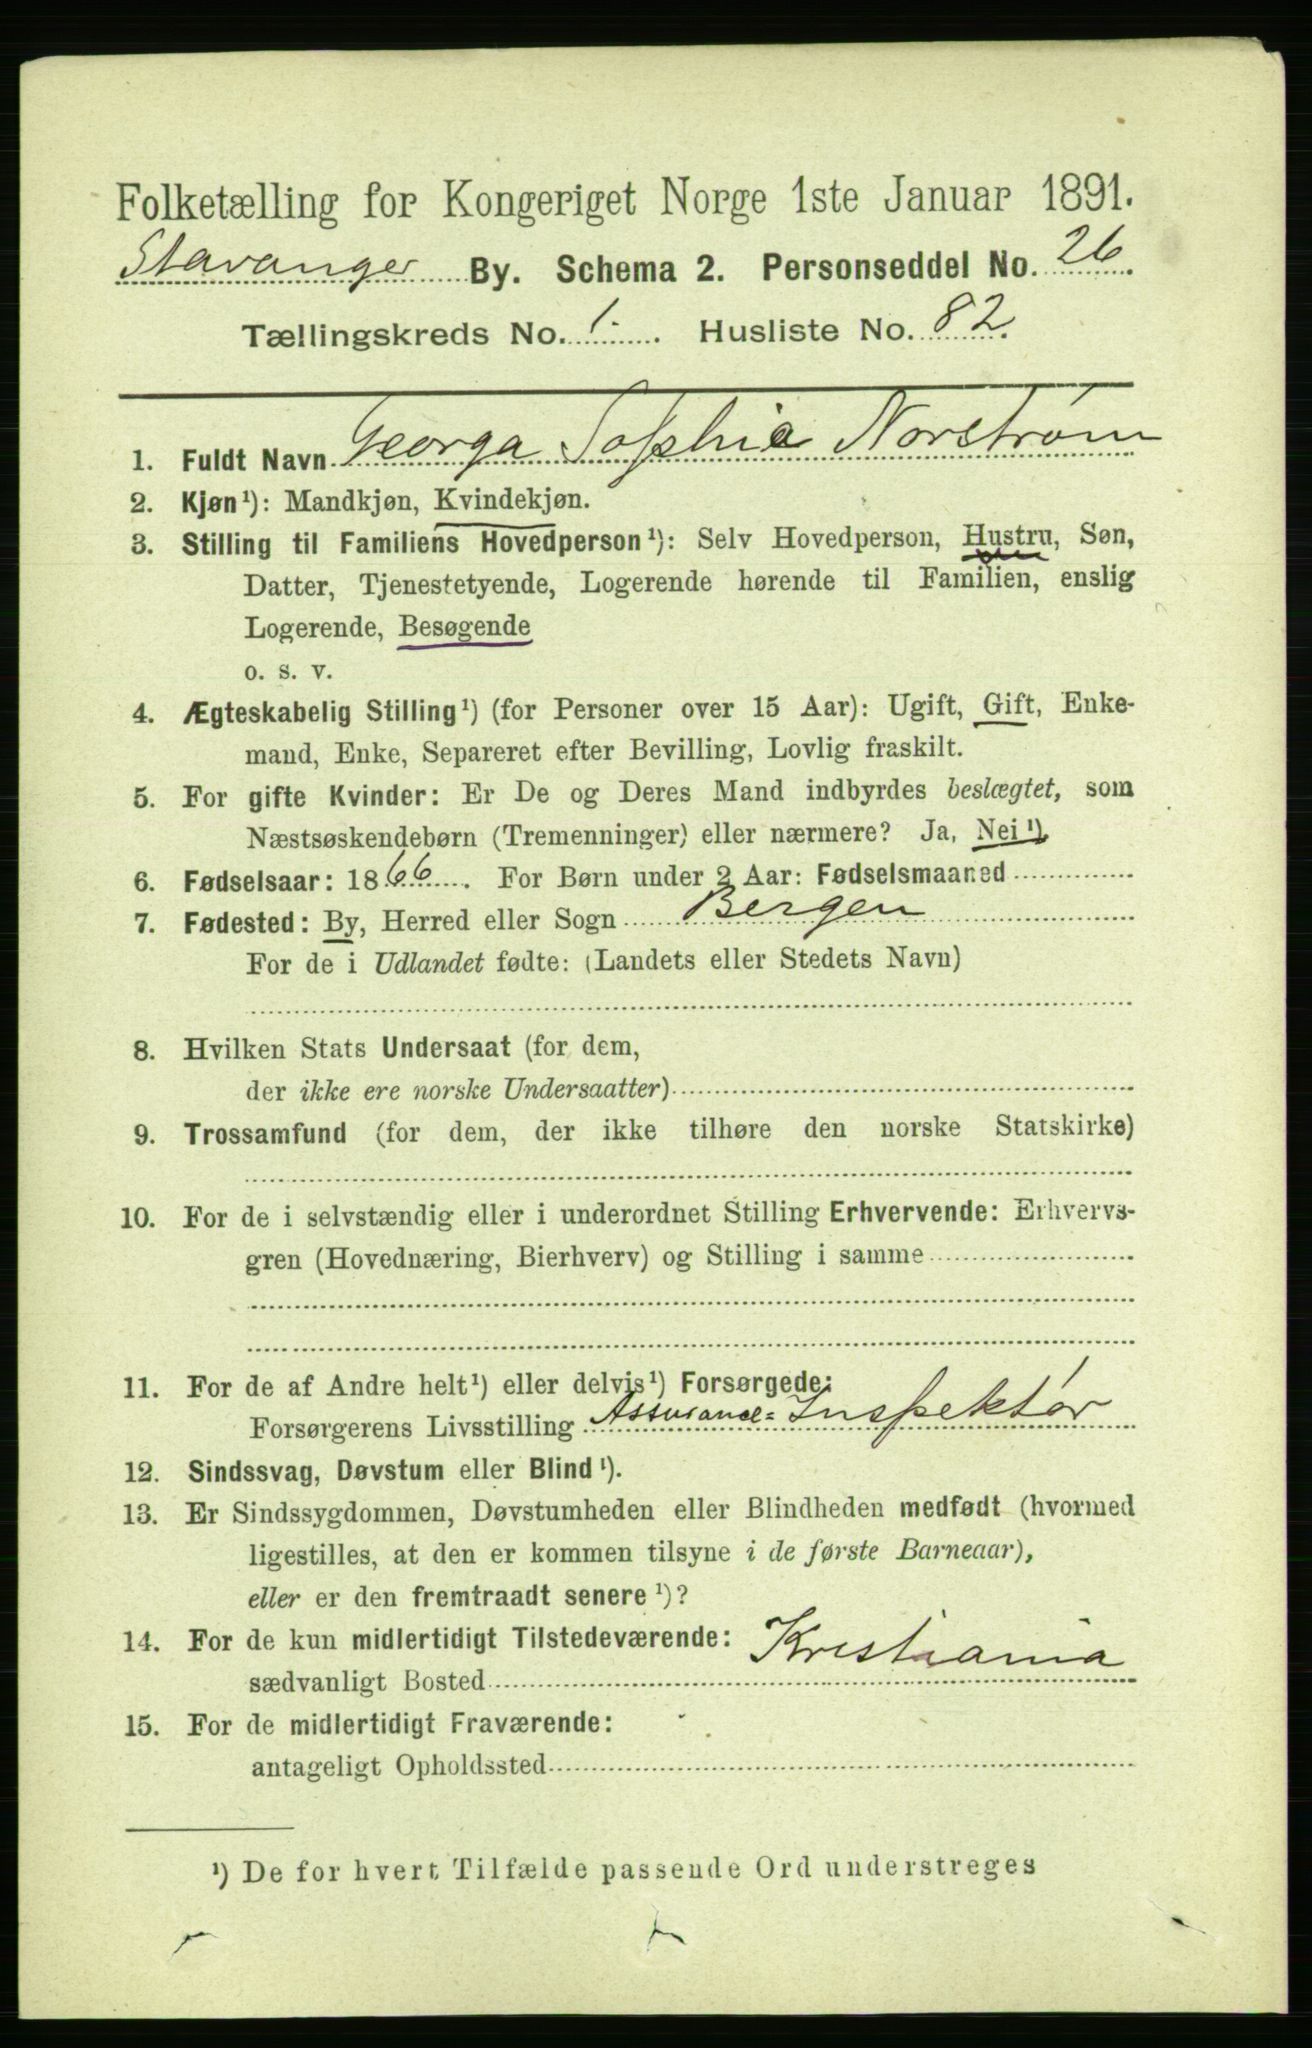 Folketælling for Kongeriget Norge 1ste Januar 1891.
Stavanger By. Schema 2. Personseddel No. 26
Tællingskreds No. 1. Husliste No. 82.
1. Fuldt Navn Georga Sophie Norström
2. Kjøn¹): Mandkjøn, Kvindekjøn.
3. Stilling til Familiens Hovedperson¹): Selv Hovedperson, Hustru, Søn,
Datter, Tjenestetyende, Logerende hørende til Familien, enslig
Logerende, Besøgende
o. s. v.
4. Ægteskabelig Stilling¹) (for Personer over 15 Aar): Ugift, Gift, Enke-
mand, Enke, Separeret efter Bevilling, Lovlig fraskilt.
5. For gifte Kvinder: Er De og Deres Mand indbyrdes beslægtet, som
Næstsøskendebørn (Tremenninger) eller nærmere? Ja, Nei¹)
6. Fødselsaar: 1866. For Børn under 2 Aar: Fødselsmaaned
7. Fødested: By, Herred eller Sogn Bergen
For de i Udlandet fødte: (Landets eller Stedets Navn)
8. Hvilken Stats Undersaat (for dem,
der ikke ere norske Undersaatter)
9. Trossamfund (for dem, der ikke tilhøre den norske Statskirke)
10. For de i selvstændig eller i underordnet Stilling Erhvervende: Erhvervs-
gren (Hovednæring, Bierhverv) og Stilling i samme
11. For de af Andre helt¹) eller delvis¹) Forsørgede:
Forsørgerens Livsstilling Assurance=Inspektör
12. Sindssvag, Døvstum eller Blind¹).
13. Er Sindssygdommen, Døvstumheden eller Blindheden medfødt (hvormed
ligestilles, at den er kommen tilsyne i de første Barneaar),
eller er den fremtraadt senere¹)?
14. For de kun midlertidigt Tilstedeværende: Kristiania
sædvanligt Bosted
15. For de midlertidigt Fraværende:
antageligt Opholdssted
¹) De for hvert Tilfælde passende Ord understreges